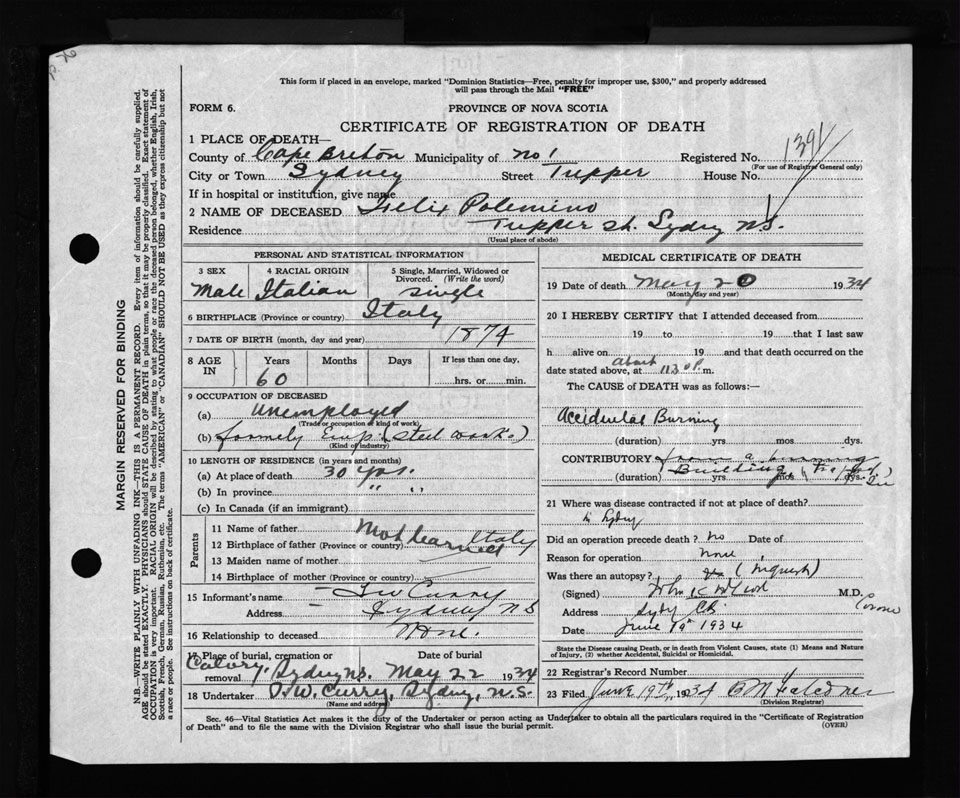 This form if placed in an envelope, marked "Dominion Statistics—Free, penalty for improper use, $300," and properly addressed
will pass through the Mail "FREE"
FORM 6.
PROVINCE OF NOVA SCOTIA
CERTIFICATE OF REGISTRATION OF DEATH
1 PLACE OF DEATH—
County of Cape Breton Municipality of No 1 Registered No. 1391
(For use of Registrar General only)
City or Town Sydney Street Tupper House No.
If in hospital or institution, give name
2 NAME OF DECEASED Felix Polemino
Residence Tupper St. Sydney N.S.
(Usual place of abode)
PERSONAL AND STATISTICAL INFORMATION
3 SEX 4 RACIAL ORIGIN 5 Single, Married, Widowed or Divorced. (Write the word)
Male Italian Single
6 BIRTHPLACE (Province or country) Italy
7 DATE OF BIRTH (month, day and year) 1874
8 AGE IN Years Months Days If less than one day,
60 hrs. or min.
9 OCCUPATION OF DECEASED
(a) Unemployed
(Trade or occupation or kind of work)
(b) formerly Emp. (Steel works)
(Kind of industry)
10 LENGTH OF RESIDENCE (in years and months)
(a) At place of death 30 yrs.
(b) In province " "
(c) In Canada (if an immigrant)
Parents
11 Name of father Not learned
12 Birthplace of father (Province or country) Italy
13 Maiden name of mother
14 Birthplace of mother (Province or country)
15 Informant's name Curry
Address Sydney N S
16 Relationship to deceased None.
17 Place of burial, cremation or removal Date of burial
Calvary, Sydney N.S. May 22 1934
18 Undertaker W. Curry, Sydney, N.S.
(Name and address)
MEDICAL CERTIFICATE OF DEATH
19 Date of death May 20 1934
(Month, day and year)
20 I HEREBY CERTIFY that I attended deceased from
19 to 19 that I last saw
h alive on 19 and that death occurred on the
date stated above, at About 11 30 P. m.
The CAUSE of DEATH was as follows:
Accidental Burning
(duration) yrs. mos. dys.
CONTRIBUTORY from a burning
Building
(duration) yrs. mos. dys.
21 Where was disease contracted if not at place of death?
in Sydney
Did an operation precede death? no Date of
Reason for operation none
Was there an autopsy? (Inquest)
(Signed) M.D.
Address
Date June 19th 1934
State the Disease causing Death, or in death from Violent Causes, state (1) Means and
Nature of Injury, (2) whether Accidental, Suicidal or Homicidal.
22 Registrar's Record Number
23 Filed June 19th, 1934
(Division Registrar)
Sec. 46—Vital Statistics Act makes it the duty of the Undertaker or person acting as Undertaker to obtain all the particulars required in the "Certificate of Registration
of Death" and to file the same with the Division Registrar who shall issue the burial permit.
(OVER)
MARGIN RESERVED FOR BINDING
N.B.—WRITE PLAINLY WITH UNFADING INK—THIS IS A PERMANENT RECORD. Every item of information should be carefully supplied.
AGE should be stated EXACTLY. PHYSICIANS should STATE CAUSE OF DEATH in plain terms, so that it may be properly classified. Exact statement of
OCCUPATION is very important. RACIAL ORIGIN will be described by stating to what people or race the deceased person belonged, whether English, Irish,
Scottish, French, German, Russian, Ruthenian, etc. The terms "AMERICAN" or "CANADIAN" SHOULD NOT BE USED as they express citizenship but not
a race or people. See instructions on back of certificate.